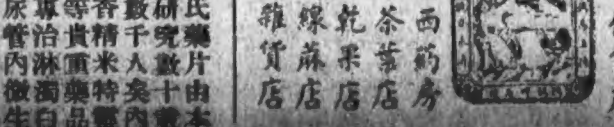 西葯房
茶葉店
乾果店
線蔴店
雜貨店
氏藥片由本
研究數十
數千人矣內
香精米特靈
等貴重藥品
專治淋濁白
尿管內微生